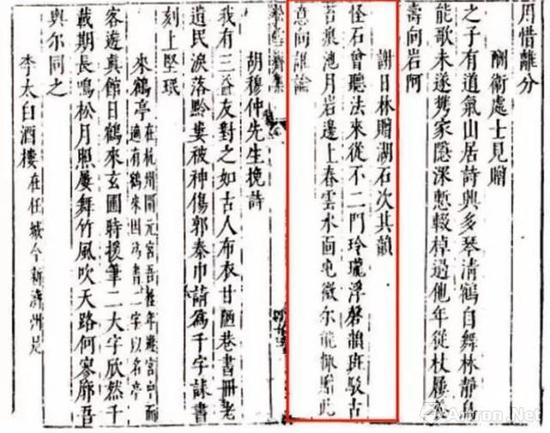 月惜離分
酬衛處士見贈
之子有道氣山居詩與多琴清鶴自舞林靜鳥
能歌未遂携家隱深慙輟棹過他年從杖屨
壽向岩阿
謝日林贈湖石次其韻
怪石曾聽法来從不二門玲瓏浮磬韻斑駁古
苔痕池月岩邊上春雲水面屯微尔能慨贈此
意向誰論
松雪齋集
胡穆仲先生挽詩
我有三益友對之如古人布衣甘陋巷書冊老
遺民淚落黔婁被神傷郭泰巾請爲千字誄書
刻上堅珉
來鶴亭 在杭州開元宮 適有鶴來因爲書二字以名亭
客遊真館日鶴來玄圃時援筆二大字欣然千
載期長鳴松月照屢舞竹風吹天路何寥廓吾
與尔同之
李太白酒樓 在任城今新濟州是
Artron.Net